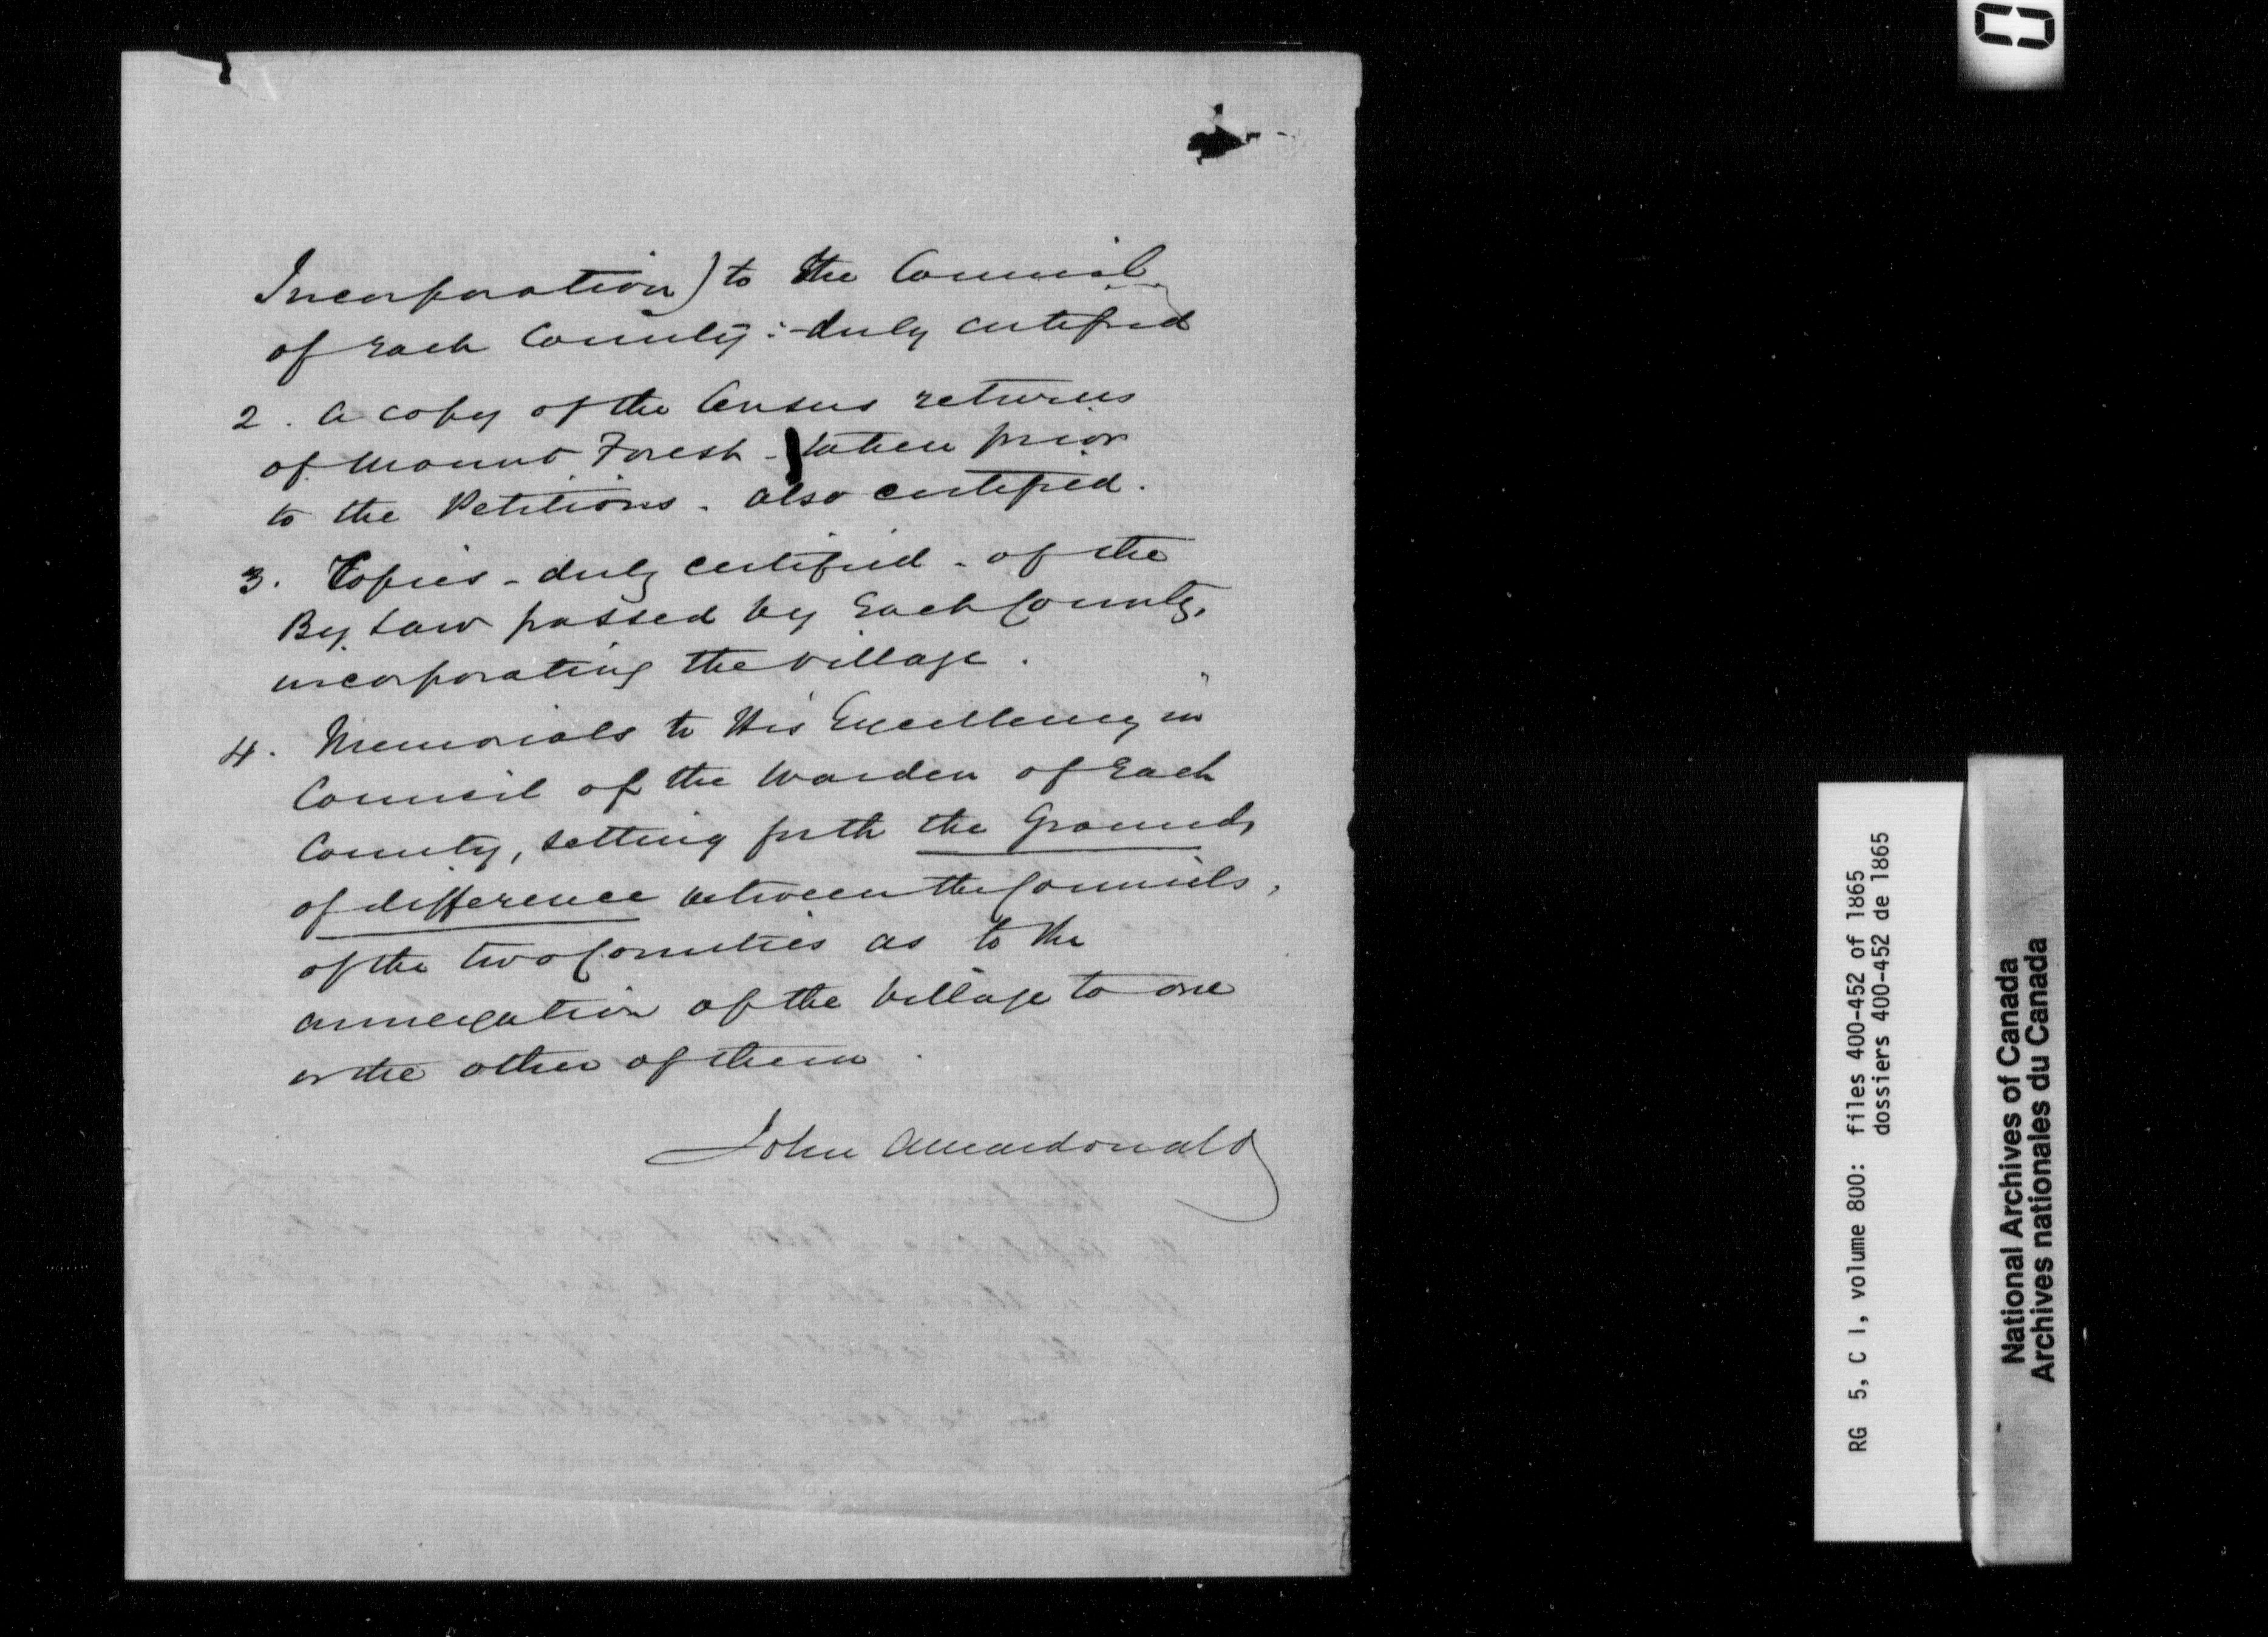 Incorporation) to the Council
of Each County :- duly certified
2. A copy of the Census returns
of Mount Forest - taken prior
to the Petitions - also certified.
3. Copies - duly certified - of the
By Law passed by Each County,
incorporating the village.
4. Memorials to His Excellency in
Council of the Warden of Each
County, setting forth the Grounds
of difference between the Councils,
of the two Counties as to the
annexation of the Village to one
or the other of them.
John A Macdonald
RG 5, C 1, volume 800: files 400-452 of 1865
dossiers 400-452 de 1865
National Archives of Canada
Archives nationales du Canada